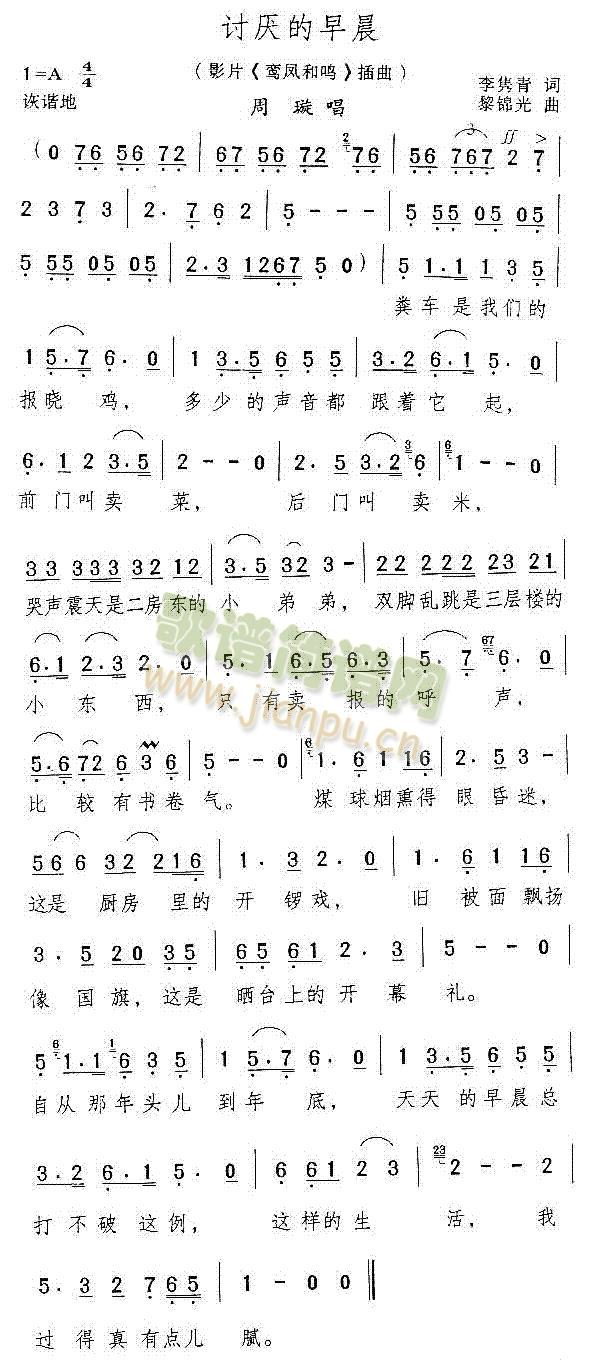 讨厌的早晨
1=A 4/4 （影片《鸾凤和鸣》插曲） 李隽青 词
诙谐地 周璇唱 黎锦光 曲
(0 76 56 72 | 67 56 72 76 | 56 767 2 7 |
2 3 7 3 | 2· 7 6 2 | 5 - - - | 5 55 05 05 |
5 55 05 05 | 2·3 1267 5 0) | 5 1·1 1 3 5 |
粪车是我们的
1 5·7 6·0 | 1 3·5 6 5 5 | 3·2 6·1 5·0 |
报晓鸡，多少的声音都跟着它起，
6·1 2 3·5 | 2 - - 0 | 2·5 3·2 6 | 1 - - 0 |
前门叫卖菜，后门叫卖米，
33 333 32 12 | 3·5 32 3 - | 22 222 23 21 |
哭声震天是二房东的小弟弟，双脚乱跳是三层楼的
6·1 2·3 2·0 | 5·1 6·5 6·3 | 5·7 6·0 |
小东西，只有卖报的呼声，
5·6 72 6 3 6 | 5 - - 0 | 1·6 1 16 | 2·5 3 - |
比较有书卷气。煤球烟熏得眼昏迷，
56 6 32 216 | 1·3 2·0 | 1·6 1 16 |
这是厨房里的开锣戏，旧被面飘扬
3·5 20 35 | 65 61 2·3 | 5 - - 0 |
像国旗，这是晒台上的开幕礼。
5 1·1 6 3 5 | 1 5·7 6·0 | 1 3·5 6 5 5 |
自从那年头儿到年底，天天的早晨总
3·2 6·1 5·0 | 6 61 2 3 | 2 - - 2 |
打不破这例，这样的生活，我
5·3 2 7 65 | 1 - 0 0 ‖
过得真有点儿腻。
歌谱简谱网
www.jianpu.cn